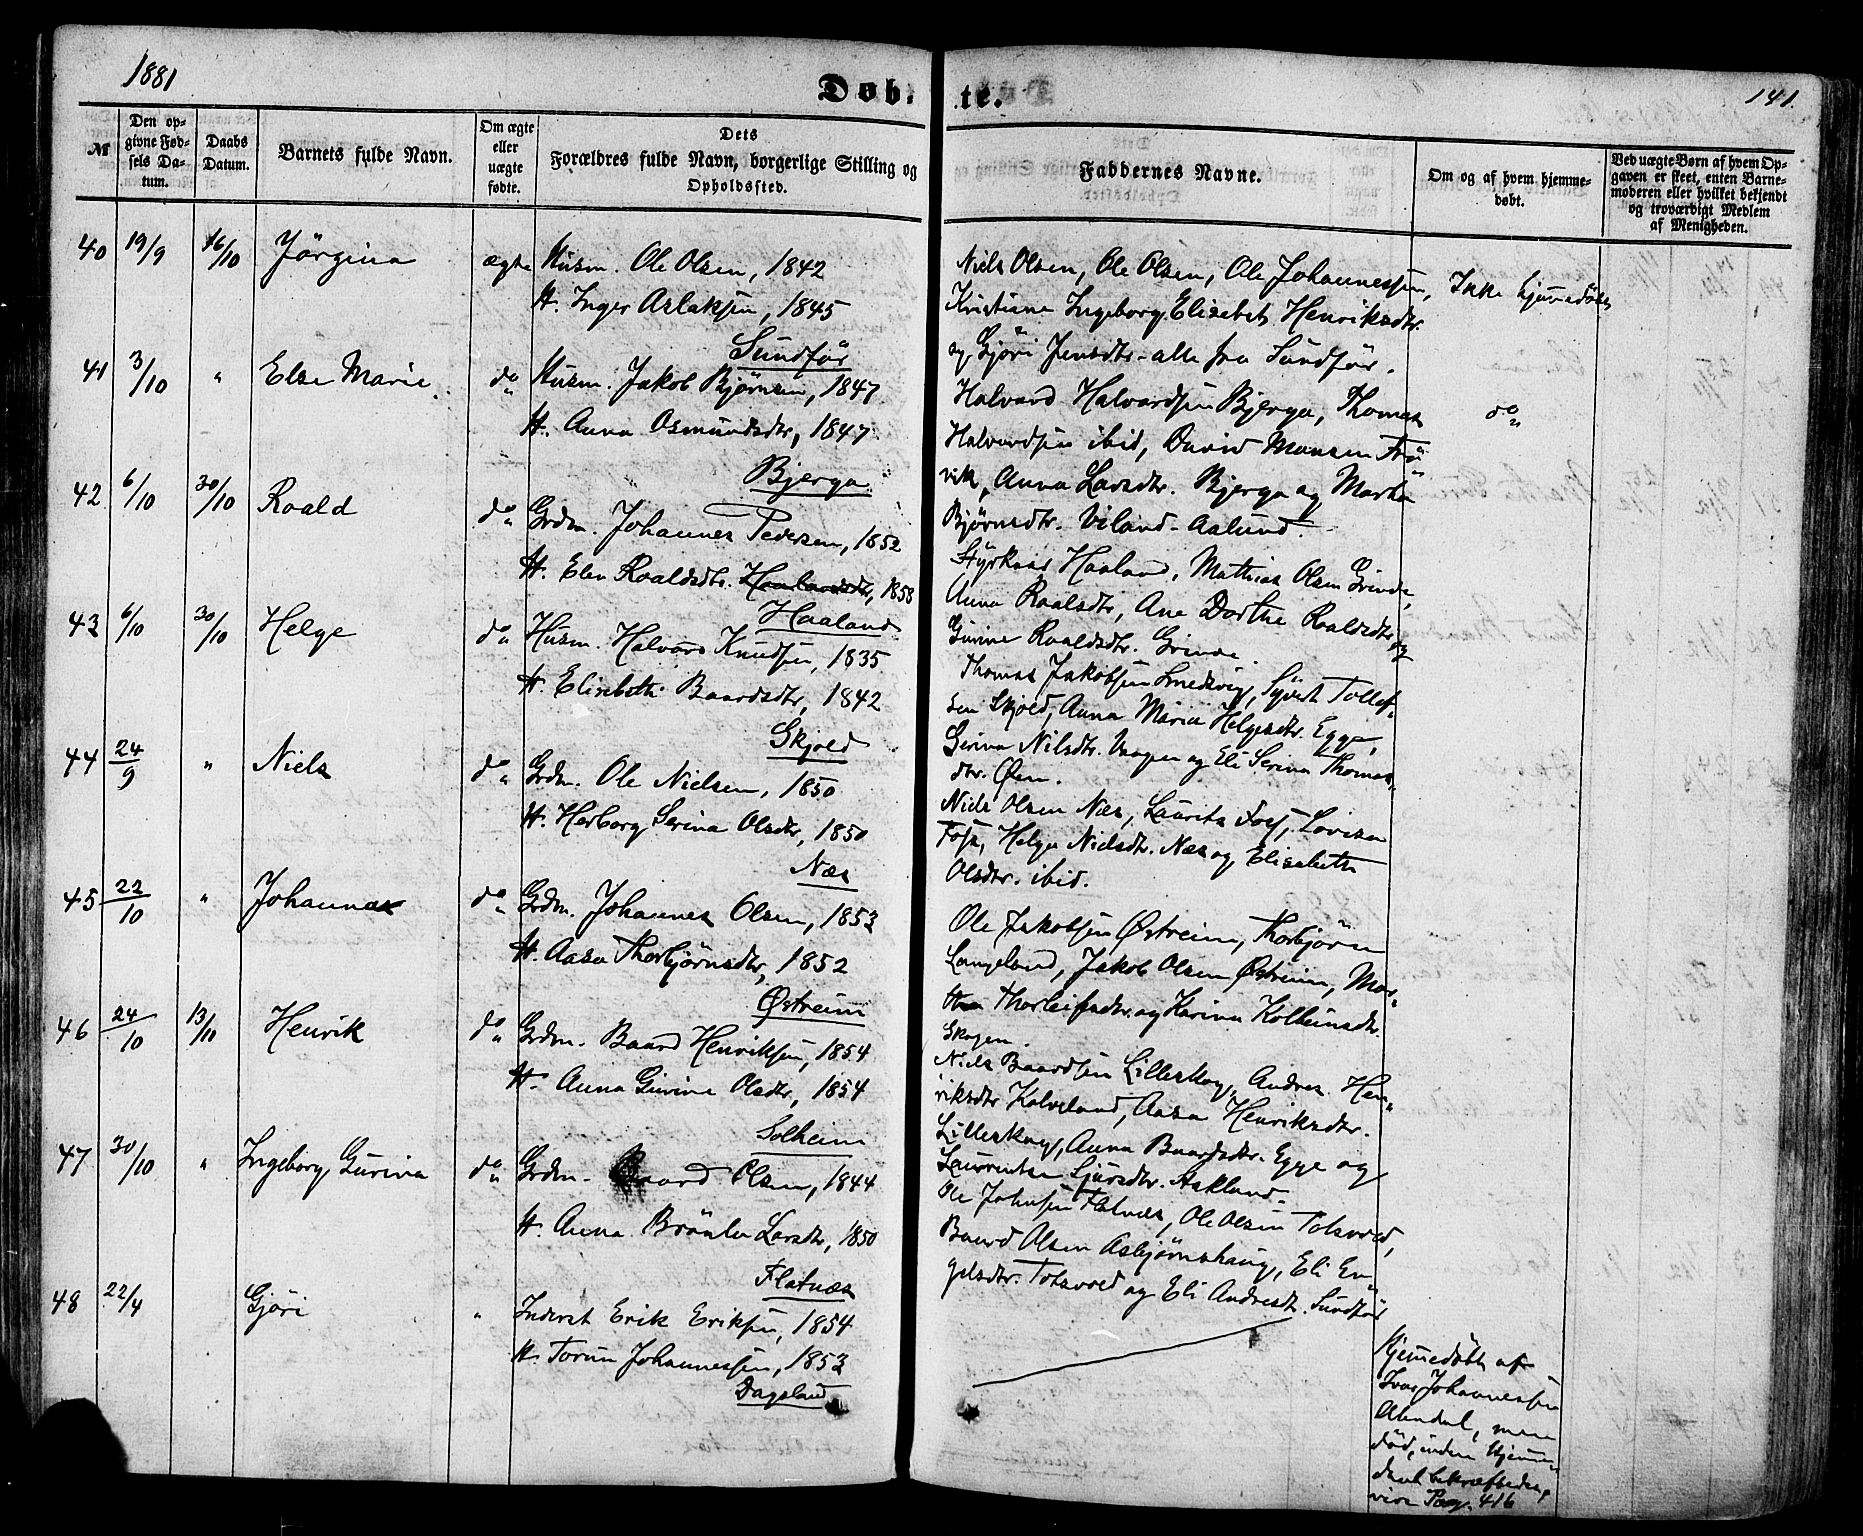 1881
Døb-te.
141.
№
Den op-
givne Fød-
sels Da-
tum.
Daabs
Datum.
Barnets fulde Navn.
Om ægte
eller
uægte
fødte.
Dets
Forældres fulde Navn, borgerlige Stilling og
Opholdssted.
Faddernes Navne.
Om og af hvem hjemme-
døbt.
Ved uægte Børn af hvem Op-
gaven er skeet, enten Barne-
moderen eller hvilket bekjendt
og troværdigt Medlem
af Menigheden.
40 19/9 16/10 Jørgina ægte Husm. Ole Olsen, 1842
H. Inger Aslaksen, 1845
Sundför
Niels Olsen, Ole Olsen, Ole Johannessen,
Kristiane Ingeborg, Elisebet, Henriksdtr.
og Gjøri Jensdtr. alle fra Sundför.
Ikke hjemmedöbt
41 3/10 " Else Marie do Husm. Jakob Bjørnsen, 1847
H. Anna Osmundsdtr, 1847
Bjerga
Halvard Halvardsen Bjerga, Thomas
Halvardsen ibid, David Monsen Frö-
vik, Anna Larsdtr. Bjerga og Martha
Bjørnsdtr. Viland-Aalund.
do
42 6/10 30/10 Roald do Grdm. Johannes Pedersen, 1852
H. Elen Roaldsdtr. 1858
Haaland
Styrkaar Haaland, Mathias Olsen Grinde,
Anna Roalsdtr, Ane Dorthe Roaldsdtr og
Gurine Roaldsdtr. Grinde.
43 6/10 30/10 Helge do Husm. Halvard Knudsen, 1835
H. Elisebeth Baardsdtr, 1842
Skjold
Thomas Jakobsen Smedsvig, Syvert Tollef-
sen Skjold, Anna Maria Helgesdtr. Egge,
Serina Nilsdtr. Vaagen og Eli Serina Thomas-
dtr. Øen.
44 24/9 " Niels do Grdm. Ole Nielsen, 1850
H. Herborg Serina Olsdtr, 1850
Næs
Niels Olsen Næs, Laurits Foss, Lovisa
Foss, Helga Nielsdtr. Næs og Elisabeth
Olsdtr. ibid.
45 22/10 " Johannes do Grdm. Johannes Olsen, 1853
H. Aasa Thorbjørnsdtr, 1852
Østreim
Ole Jakobsen Østreim, Thorbjørn
Langeland, Jakob Olsen Østreim, Mar-
tha Thorleifsdtr. og Karina Kolbeinsdtr.
Skogen.
46 24/10 13/10 Henrik do Grdm. Baard Henriksen, 1854
H. Anna Gurine Olsdtr, 1854
Solheim
Niels Baardsen Lilleskog, Andrea Hen-
riksdtr Kalveland, Aasa Henriksdtr.
Lilleskog, Anna Baardsdtr. Egge og
Laurentse Sjursdtr. Aakland.
47 30/10 " Ingeborg Gurina do Grdm. Baard Olsen, 1844
H. Anna Larsdtr, 1850
Flatnæs
Ole Johnsen Flatnæs, Ole Olsen Totsvred,
Baard Olsen Asbjørnshaug, Eli En-
gelsdtr. Totsvred og Eli Andresdtr. Sundför
48 22/4 Gjøri " Inderst Erik Eriksen, 1854
H. Torun Johannessen, 1853
Dagsland
Hjemmedöbt af
Ivar Johannessen
Alendal, men
död, inden Hjemme-
daab bekræftedes,
vide Pag. 416